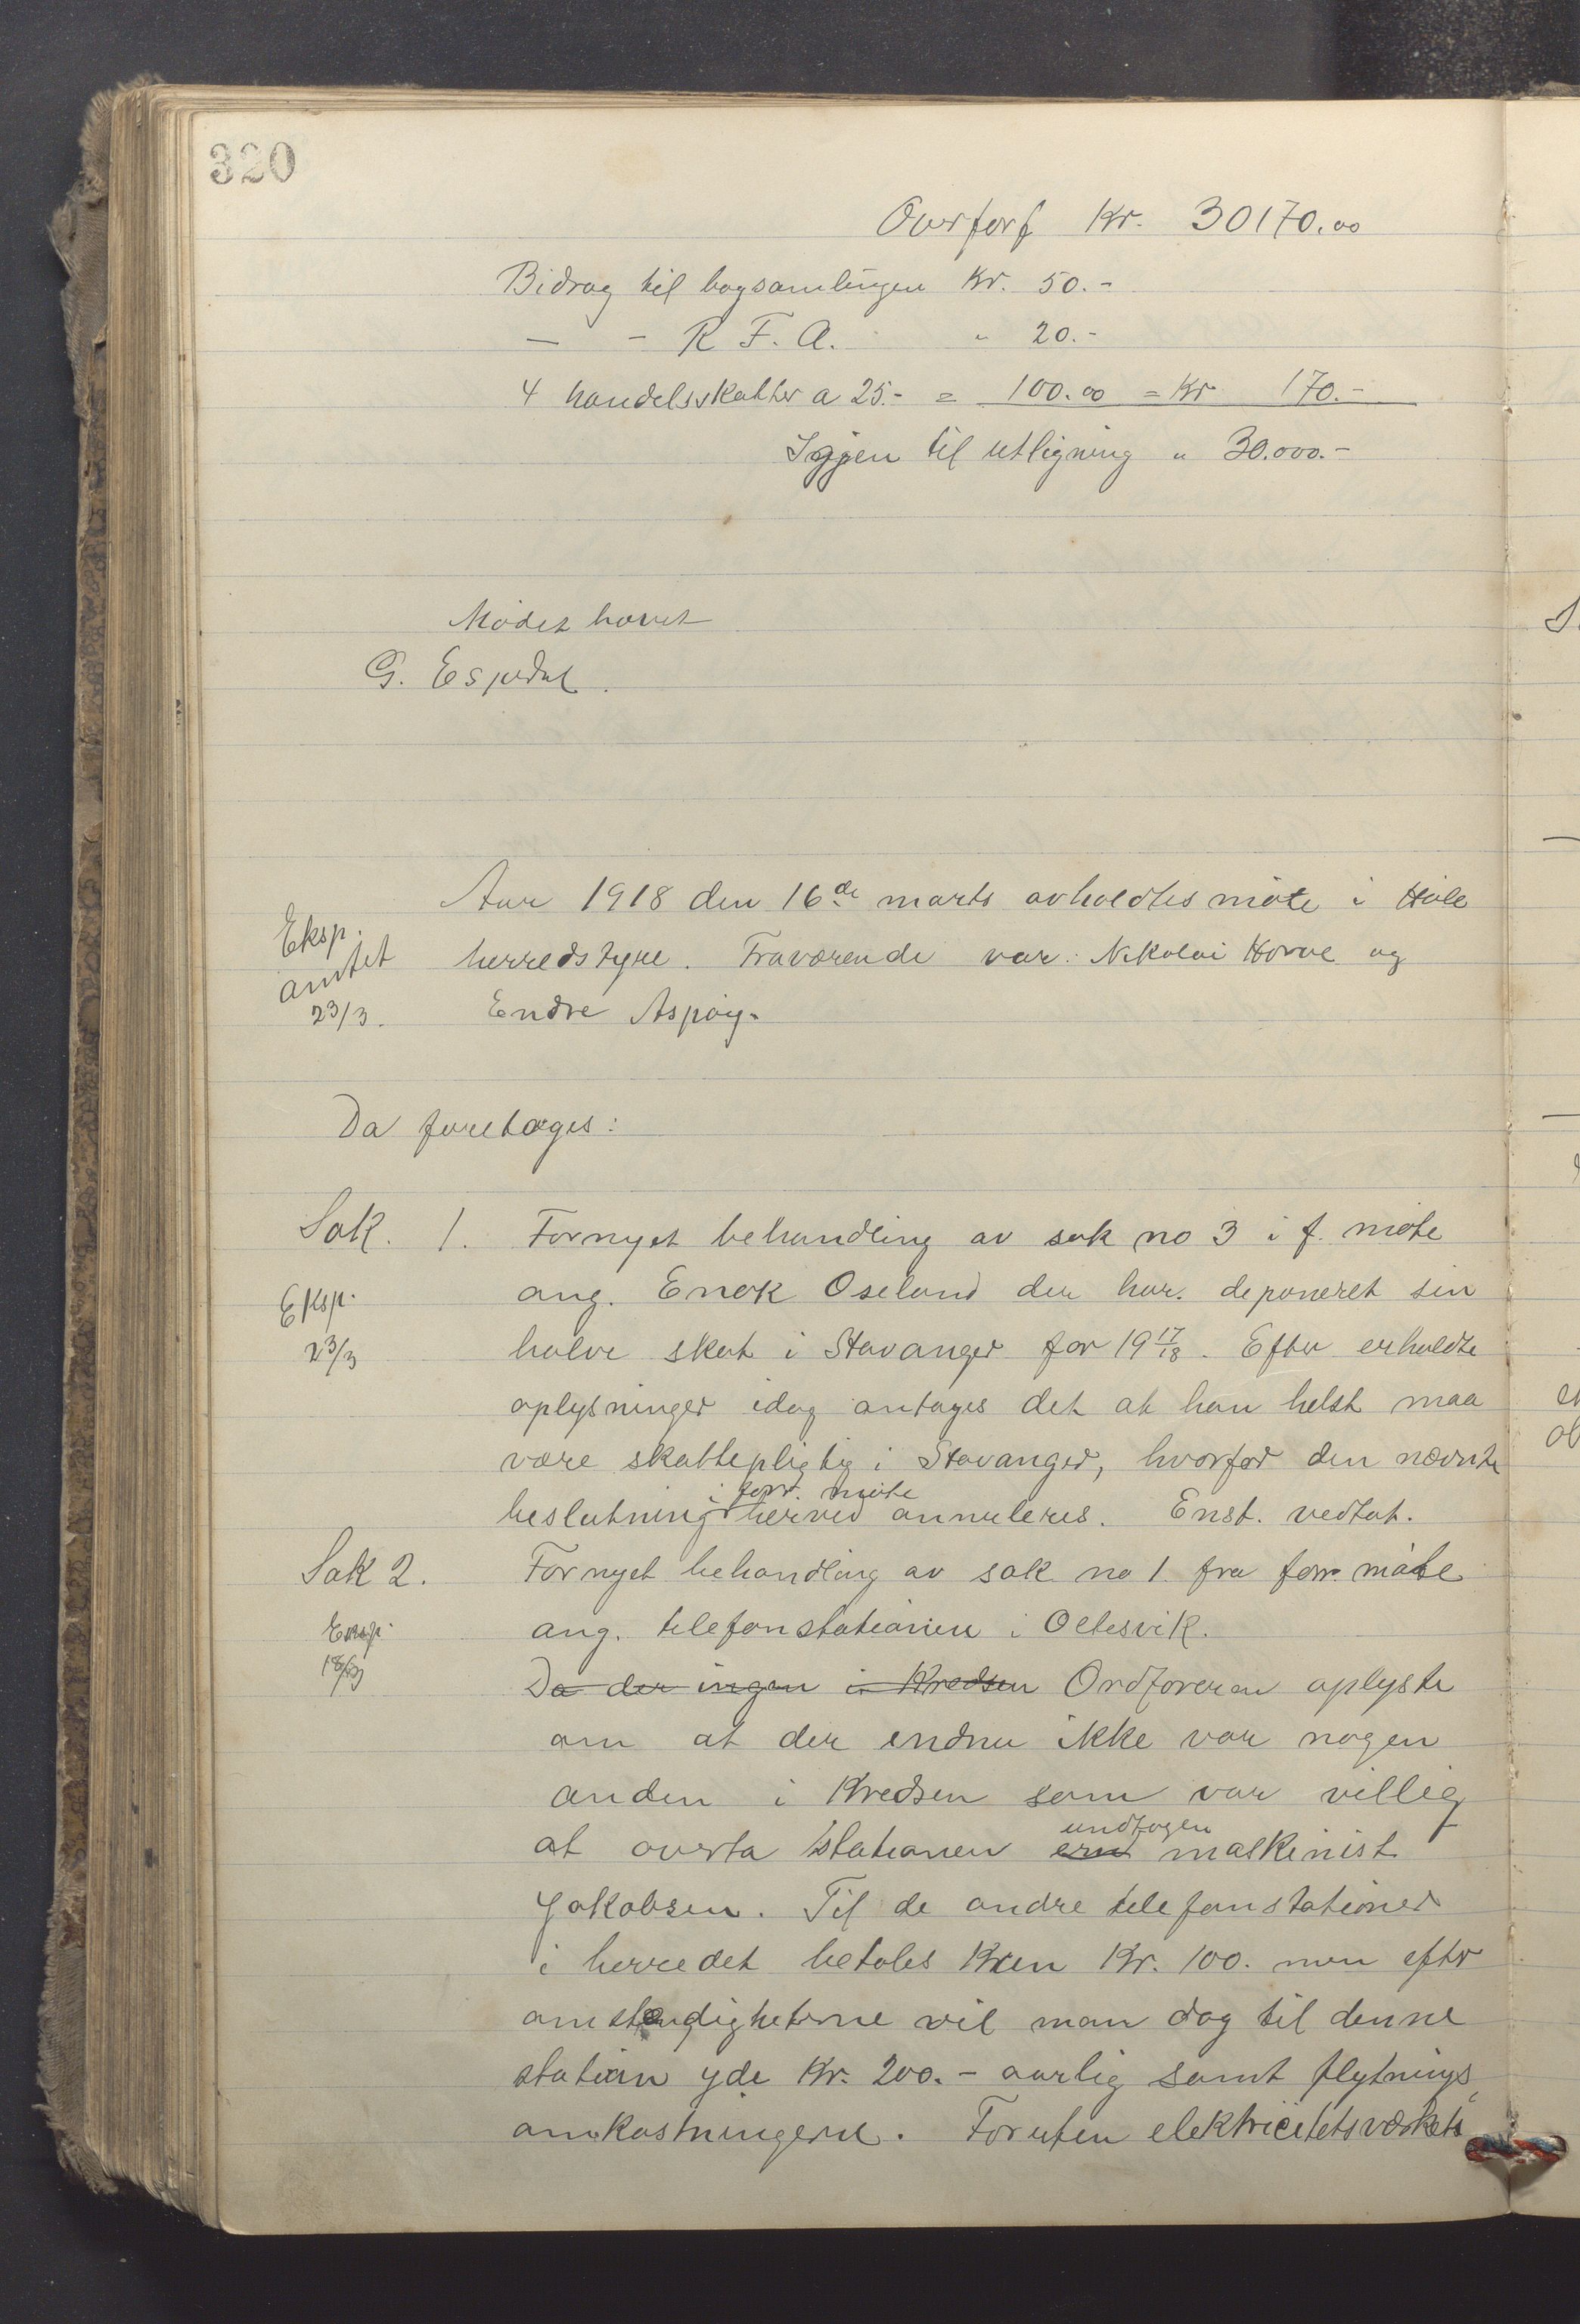 320
Overført Kr. 30170.00
Bidrag til bogsamlingen Kr. 50.-
— - R F. A. " 20.-
4 handelsskatter a 25.- = 100.00 = Kr 170.-
Igjen til utligning " 30.000.-
Mødet hævet
G. Espedal.
Aar 1918 den 16de marts avholdtes møte i Høle
Eksp. amtet 23/3.
herredstyre. Fraværende var: Nikolai Horve og
Endre Aspøy.
Da foretages:
Sak. 1. Fornyet behandling av sak no 3 i f. møte
Eksp. 23/3
ang. Enok Oseland der har deponeret sin
halve skat i Stavanger for 19 17/18. Efter erholdte
oplysninger idag antages det at han helst maa
være skattepligtig i Stavanger, hvorfor den nævnte
beslutning i forr. møte herved annuleres. Enst. vedtat.
Sak 2. Fornyet behandling av sak no 1 fra forr. møte
Eksp. 18/3
ang. telefonstationen i Oltesvik.
Da der ingen i Kredsen Ordføreren oplyste
om at der endnu ikke var nogen
anden i Kredsen som var villig
at overta stationen undtagen maskinist
Jakobsen. Til de andre telefonstationer
i herredet betales Kun Kr. 100. men efter
omstændigheterne vil man dog til denne
station yde Kr. 200.- aarlig samt flytnings
omkostningerne. Foruten elektricitetsverkets